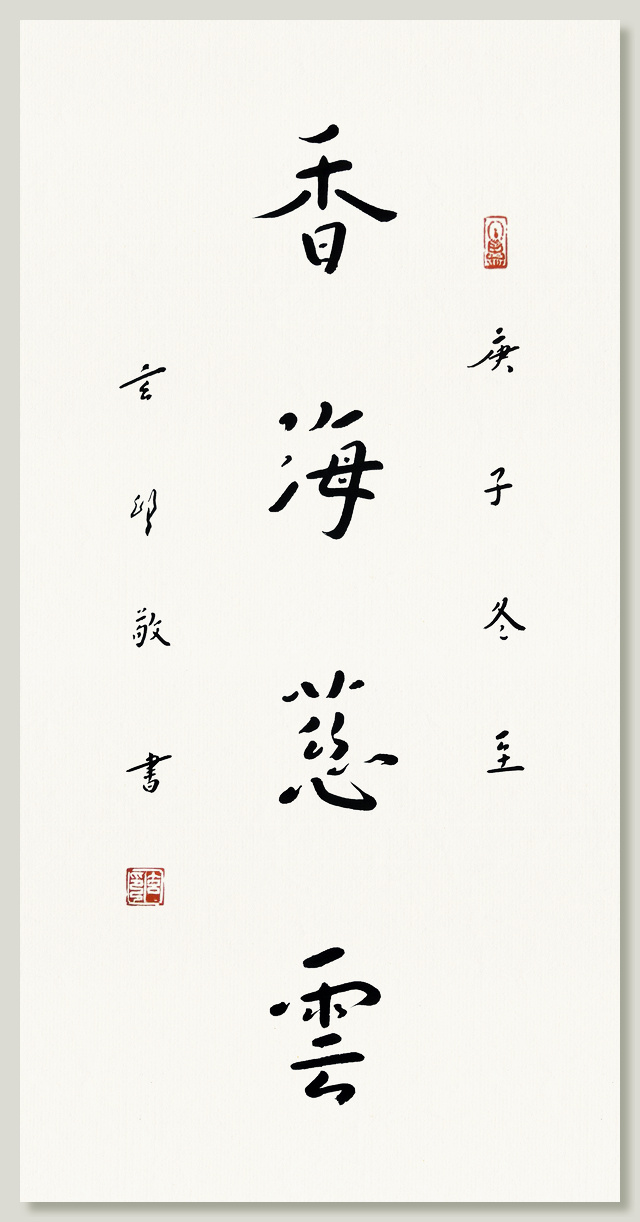 庚子冬至
香海慈雲
言印敬書